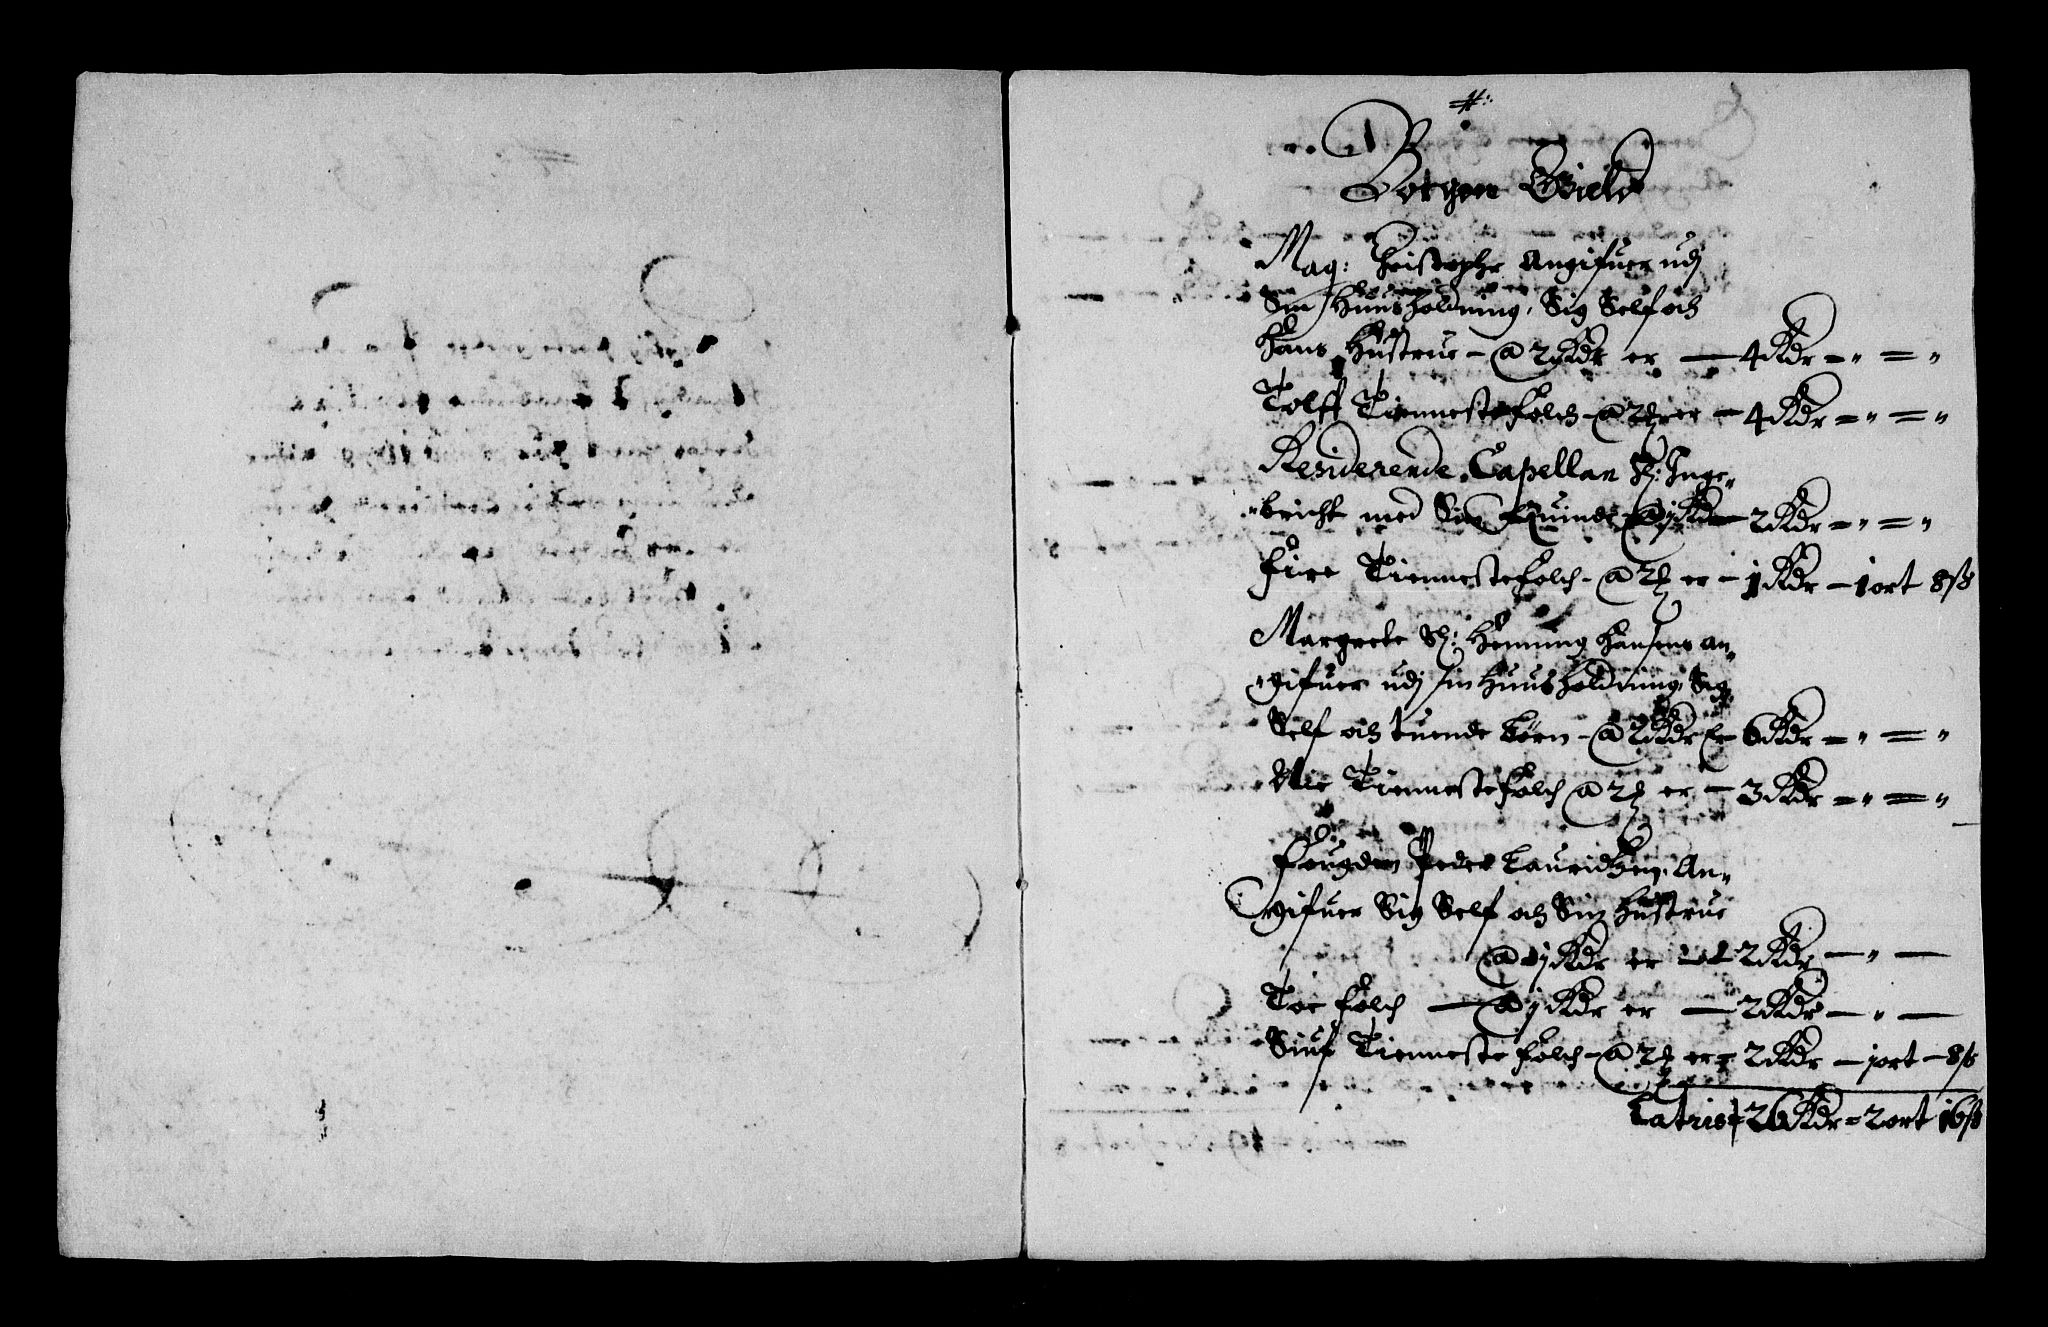 #:
Borgen Gield
Mag: Christopher Angifuer udj
Sin Huusholdning, Sig Self och
Hans Hustrue - @ 2 Rdr er — 4 Rdr = " = "
Tolff Tiennestefolch - @ 2 ₰ er — 4 Rdr = " = "
Residerende Capellan Hr: Inge"
"bricht med Sin Quinde @ j Rdr — 2 Rdr = " = "
Fire Tiennestefolch - @ 2 ₰ er - 1 Rdr — 1 ort 8 ß
Margrete Sl: Henning Hansens an"
"gifuer udj sin Huusholdning, Sig
Self och tuende børn - @ 2 Rdr er 6 Rdr = " = "
Nie Tiennestefolch @ 2 ₰ er — 3 Rdr = " = "
Fougden Peder Lauridtzen, An"
gifuer Sig Self och Sin Hustrue
@ j Rdr er — 2 Rdr — " —
Toe folch — @ j Rdr er — 2 Rdr — " —
Siuf Tienneste folch - @ 2 ₰ er = 2 Rdr — j ort — 8 ß
Latris 26 Rdr = 2 ort 16 ß